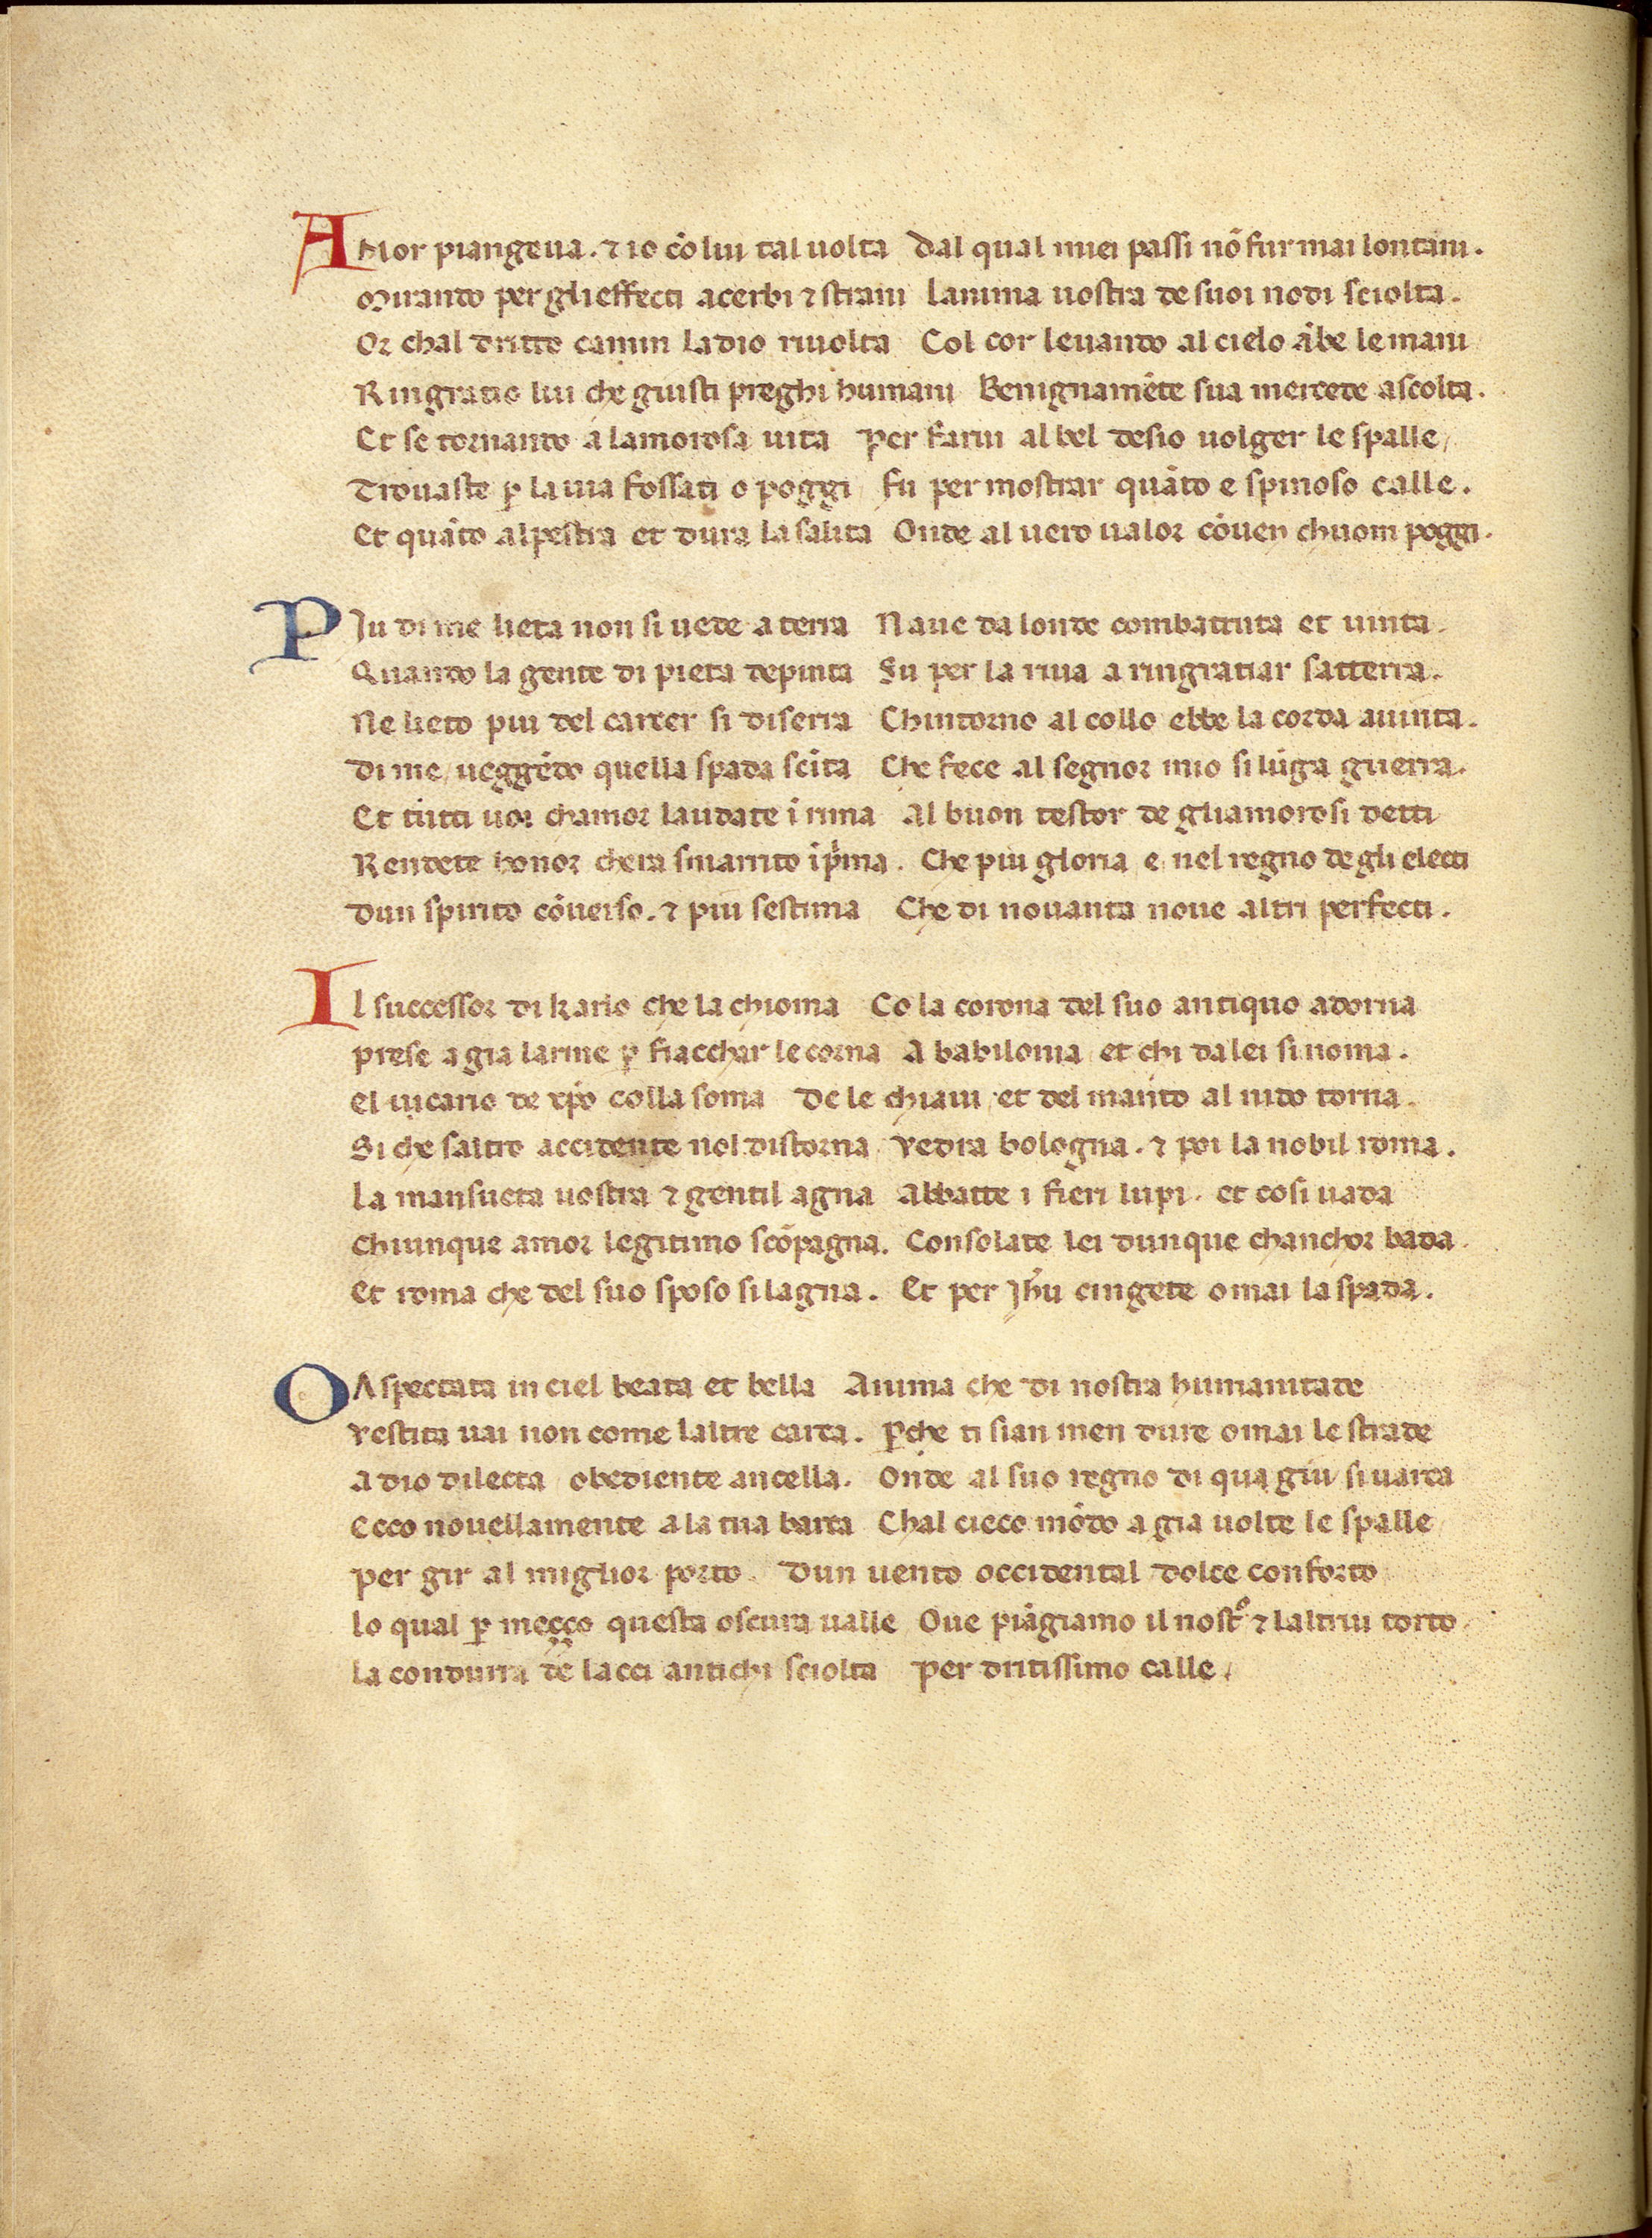 AMor piangeua. ⁊ io cō lui tal uolta Dal qual miei passi nō fur mai lontani.
Mirando per gli effecti acerbi ⁊ strani Lanima uostra de suoi nodi sciolta.
Or chal dritto camin la dio riuolta Col cor leuando al cielo ābe le mani
Ringratio lui che giusti preghi humani Benignamēte sua mercede ascolta.
Et se tornando a lamorosa uita per farui al bel desio uolger le spalle/
Trouaste ꝑ la uia fossati o poggi fu per mostrar quāto e spinoso calle.
Et quāto alpestra et dura la salita Onde al uero ualor cōuen chuom poggi.
PIu di me lieta non si uede a terra Naue da londe combattuta et uinta.
Quando la gente di pieta depinta Su per la riua a ringratiar satterra.
Ne lieto piu del carcer si diserra Chintorno al collo ebbe la corda auinta.
Di me/ ueggēdo quella spada scīta Che fece al segnor mio si lūga guerra.
Et tutti uoi chamor laudate ī rima Al buon testor de gliamorosi detti
Rendete honor chera smarrito īpͥma. Che piu gloria e/ nel regno de gli electi
Dun spirito cōuerso. ⁊ piu sestima Che di nouanta noue altri perfecti.
Il successor di karlo che la chioma Co la corona del suo antiquo adorna
prese a gia larme ꝑ fiacchar le corna A babilonia/ et chi da lei si noma.
El uicario de xp̄o colla soma De le chiaui/ et del manto al nido torna.
Si che saltro accidente nol distorna/ Vedra bologna. ⁊ poi la nobil roma.
La mansueta uostra ⁊ gentil agna Abbatte i fieri lupi. et cosi uada
Chiunque amor legitimo scōpagna. Consolate lei dunque chanchor bada.
Et roma che del suo sposo si lagna. Et per Jh̄u cingete omai la spada.
OAspectata in ciel beata et bella Anima che di nostra humanitade
Vestita uai non come laltre carca. ꝑche ti sian men dure omai le strade
A dio dilecta/ obediente ancella. Onde al suo regno di qua giu si uarca
Ecco nouellamente a la tua barca Chal cieco mōdo a gia uolte le spalle/
per gir al miglior porto. Dun uento occidental dolce conforto
lo qual ꝑ meçço questa oscura ualle Oue piāgiamo il nostͦ ⁊ laltrui torto/
la condurra de lacci antichi sciolta per dritissimo calle/